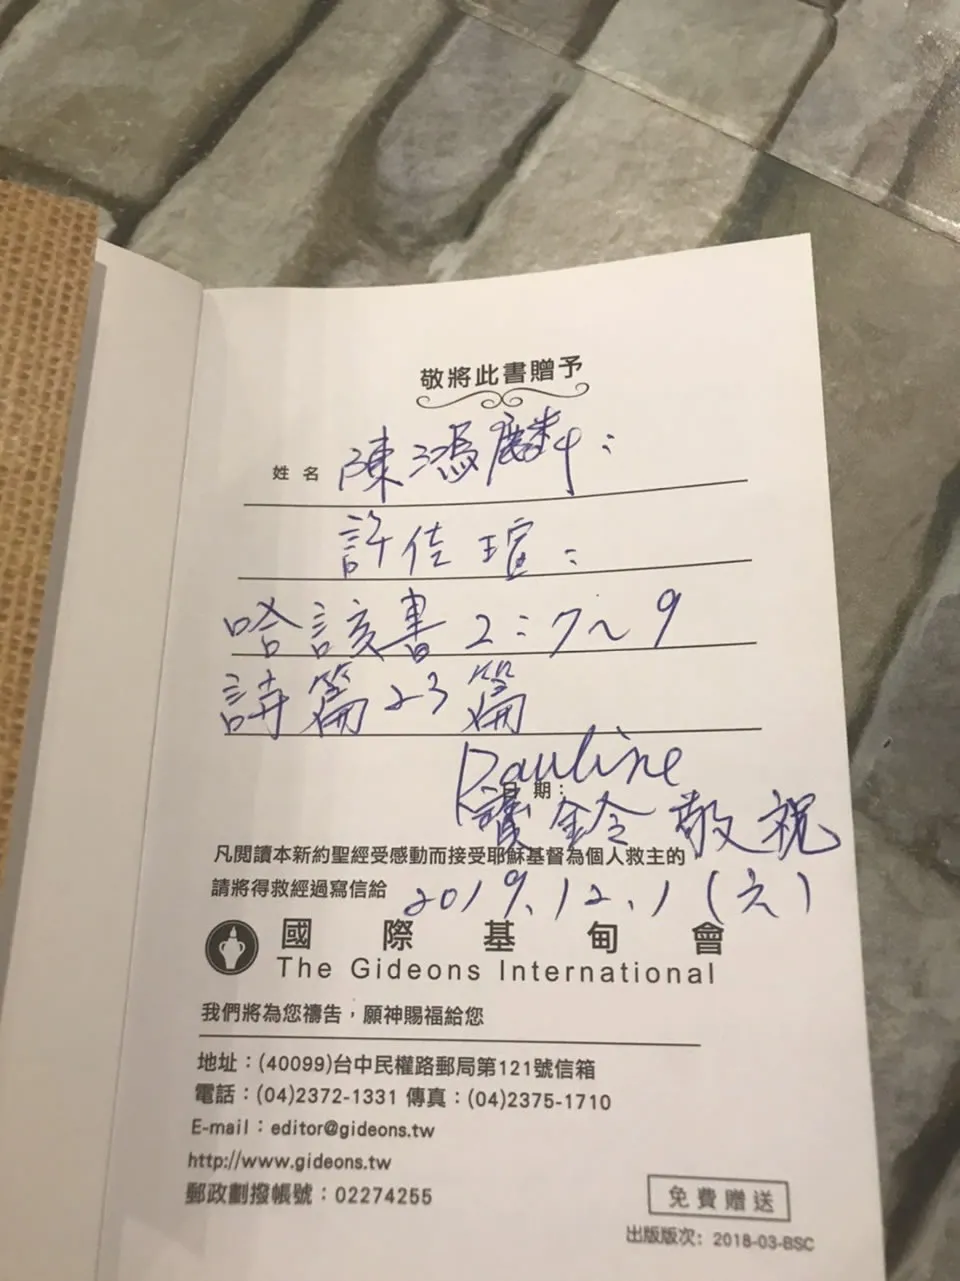 敬將此書贈予
姓名 陳鴻麟:
許佳瑄:
哈該書2:7~9
詩篇23篇
Pauline
日期:
鈴敬祝
凡閱讀本新約聖經受感動而接受耶穌基督為個人救主的
請將得救經過寫信給
2019.12.1(六)
國際基甸會
The Gideons International
我們將為您禱告,願神賜福給您
地址:(40099)台中民權路郵局第121號信箱
電話:(04)2372-1331 傳真:(04)2375-1710
E-mail:editor@gideons.tw
http://www.gideons.tw
郵政劃撥帳號:02274255
免費贈送
出版版次: 2018-03-BSC